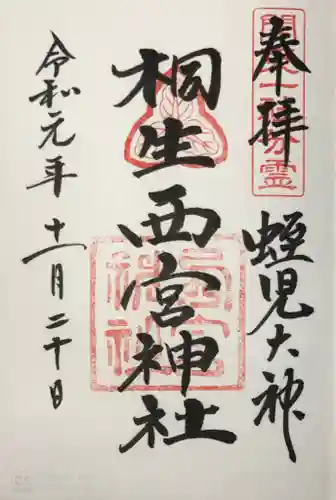 奉拝
蛭児大神
桐生西宮神社
令和元年
十一月二十日